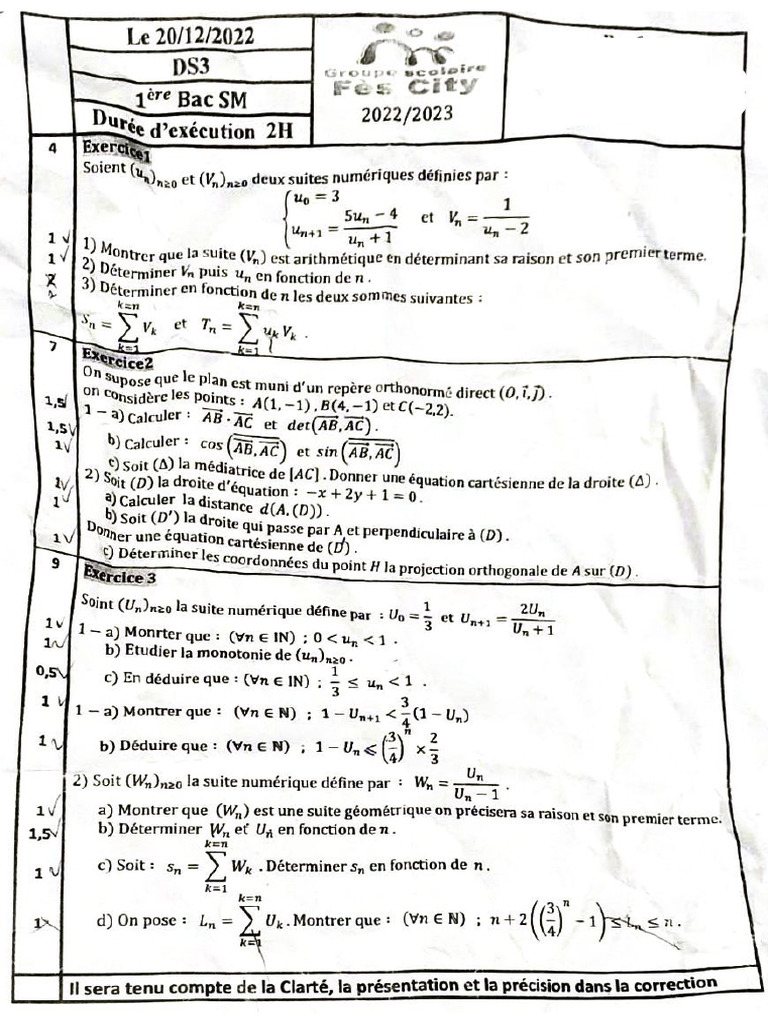 Le 20/12/2022
DS3
1ère Bac SM
Durée d'exécution 2H
Groupe scolaire
Fès City
2022/2023
4 Exercice1
Soient (u_n)_{n≥0} et (V_n)_{n≥0} deux suites numériques définies par :
{ u_0 = 3
u_{n+1} = (5u_n − 4)/(u_n + 1) et V_n = 1/(u_n − 2)
1 √ 1) Montrer que la suite (V_n) est arithmétique en déterminant sa raison et son premier terme.
1 √ 2) Déterminer V_n puis u_n en fonction de n .
2 3) Déterminer en fonction de n les deux sommes suivantes :
S_n = ∑_{k=1}^{k=n} V_k et T_n = ∑_{k=1}^{k=n} u_k V_k .
7 Exercice2
On supose que le plan est muni d'un repère orthonormé direct (O, i⃗, j⃗).
on considère les points : A(1,−1) , B(4,−1) et C(−2,2).
1,5 1 − a) Calculer : AB⃗ · AC⃗ et det(AB⃗, AC⃗) .
1,5√ b) Calculer : cos(AB⃗, AC⃗) et sin(AB⃗, AC⃗)
1√ c) Soit (Δ) la médiatrice de [AC] . Donner une équation cartésienne de la droite (Δ) .
2) Soit (D) la droite d'équation : −x + 2y + 1 = 0 .
1√ a) Calculer la distance d(A, (D)) .
1√ b) Soit (D') la droite qui passe par A et perpendiculaire à (D) .
Donner une équation cartésienne de (D') .
1√ c) Déterminer les coordonnées du point H la projection orthogonale de A sur (D) .
9 Exercice 3
Soint (U_n)_{n≥0} la suite numérique défine par : U_0 = 1/3 et U_{n+1} = 2U_n/(U_n + 1)
1√ 1 − a) Monrter que : (∀n ∈ IN) ; 0 < u_n < 1 .
1√ b) Etudier la monotonie de (u_n)_{n≥0} .
0,5√ c) En déduire que : (∀n ∈ IN) ; 1/3 ≤ u_n < 1 .
1 √ 1 − a) Montrer que : (∀n ∈ ℕ) ; 1 − U_{n+1} < 3/4 (1 − U_n)
1 √ b) Déduire que : (∀n ∈ ℕ) ; 1 − U_n ⩽ (3/4)^n × 2/3
2) Soit (W_n)_{n≥0} la suite numérique défine par : W_n = U_n/(U_n − 1) .
1√ a) Montrer que (W_n) est une suite géométrique on précisera sa raison et son premier terme.
1,5√ b) Déterminer W_n et U_n en fonction de n .
1 √ c) Soit : s_n = ∑_{k=1}^{k=n} W_k . Déterminer s_n en fonction de n .
1 d) On pose : L_n = ∑_{k=1}^{k=n} U_k . Montrer que : (∀n ∈ ℕ) ; n + 2((3/4)^n − 1) ≤ L_n ≤ n .
Il sera tenu compte de la Clarté, la présentation et la précision dans la correction